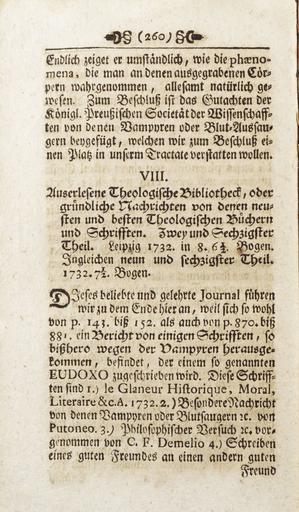 (260)
Endlich zeiget er umständlich, wie die phæno-
mena, die man an denen ausgegrabenen Cör-
pern wahrgenommen, allesamt natürlich ge-
wesen. Zum Beschluß ist das Gutachten der
Königl. Preußischen Societät der Wissenschaff-
ten von denen Vampyren oder Blut-Aussau-
gern beygefügt, welchen wir zum Beschluß ei-
nen Platz in unserm Tractate verstatten wollen.
VIII.
Auserlesene Theologische Bibliotheck, oder
gründliche Nachrichten von denen neu-
sten und besten Theologischen Büchern
und Schrifften. Zwey und Sechzigster
Theil. Leipzig 1732. in 8. 6¾. Bogen.
Ingleichen neun und sechzigster Theil.
1732. 7½. Bogen.
Dieses beliebte und gelehrte Journal führen
wir zu dem Ende hier an, weil sich so wohl
von p. 143. biß 152. als auch von p. 870. biß
881. ein Bericht von einigen Schrifften, so
bißhero wegen der Vampyren herausge-
kommen, befindet, der einem so genannten
EUDOXO zugeschrieben wird. Diese Schriff-
ten sind 1.) le Glaneur Historique, Moral,
Literaire &c. A. 1732. 2.) Besondere Nachricht
von denen Vampyren oder Blutsaugern ꝛc. von
Putoneo. 3.) Philosophischer Versuch ꝛc. vor-
genommen von C. F. Demelio 4.) Schreiben
eines guten Freundes an einen andern guten
Freund